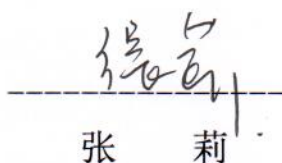 张莉
张 莉